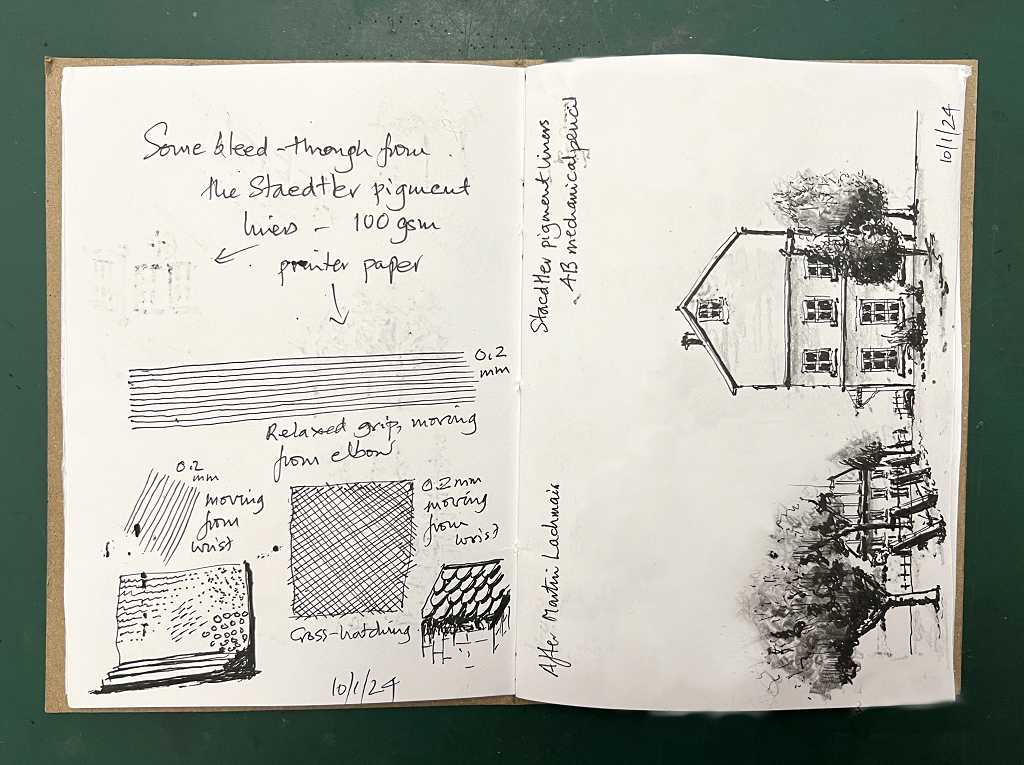 Some bleed-through from
the Staedtler pigment
liners - 100 gsm
printer paper
0.2
mm
Relaxed grip, moving
from elbow
0.2
mm
moving
from
wrist
0.2 mm
moving
from
wrist
Cross-hatching
10/1/24
Staedtler pigment liners
4B mechanical pencil
After Martin Lachmair
10/1/24